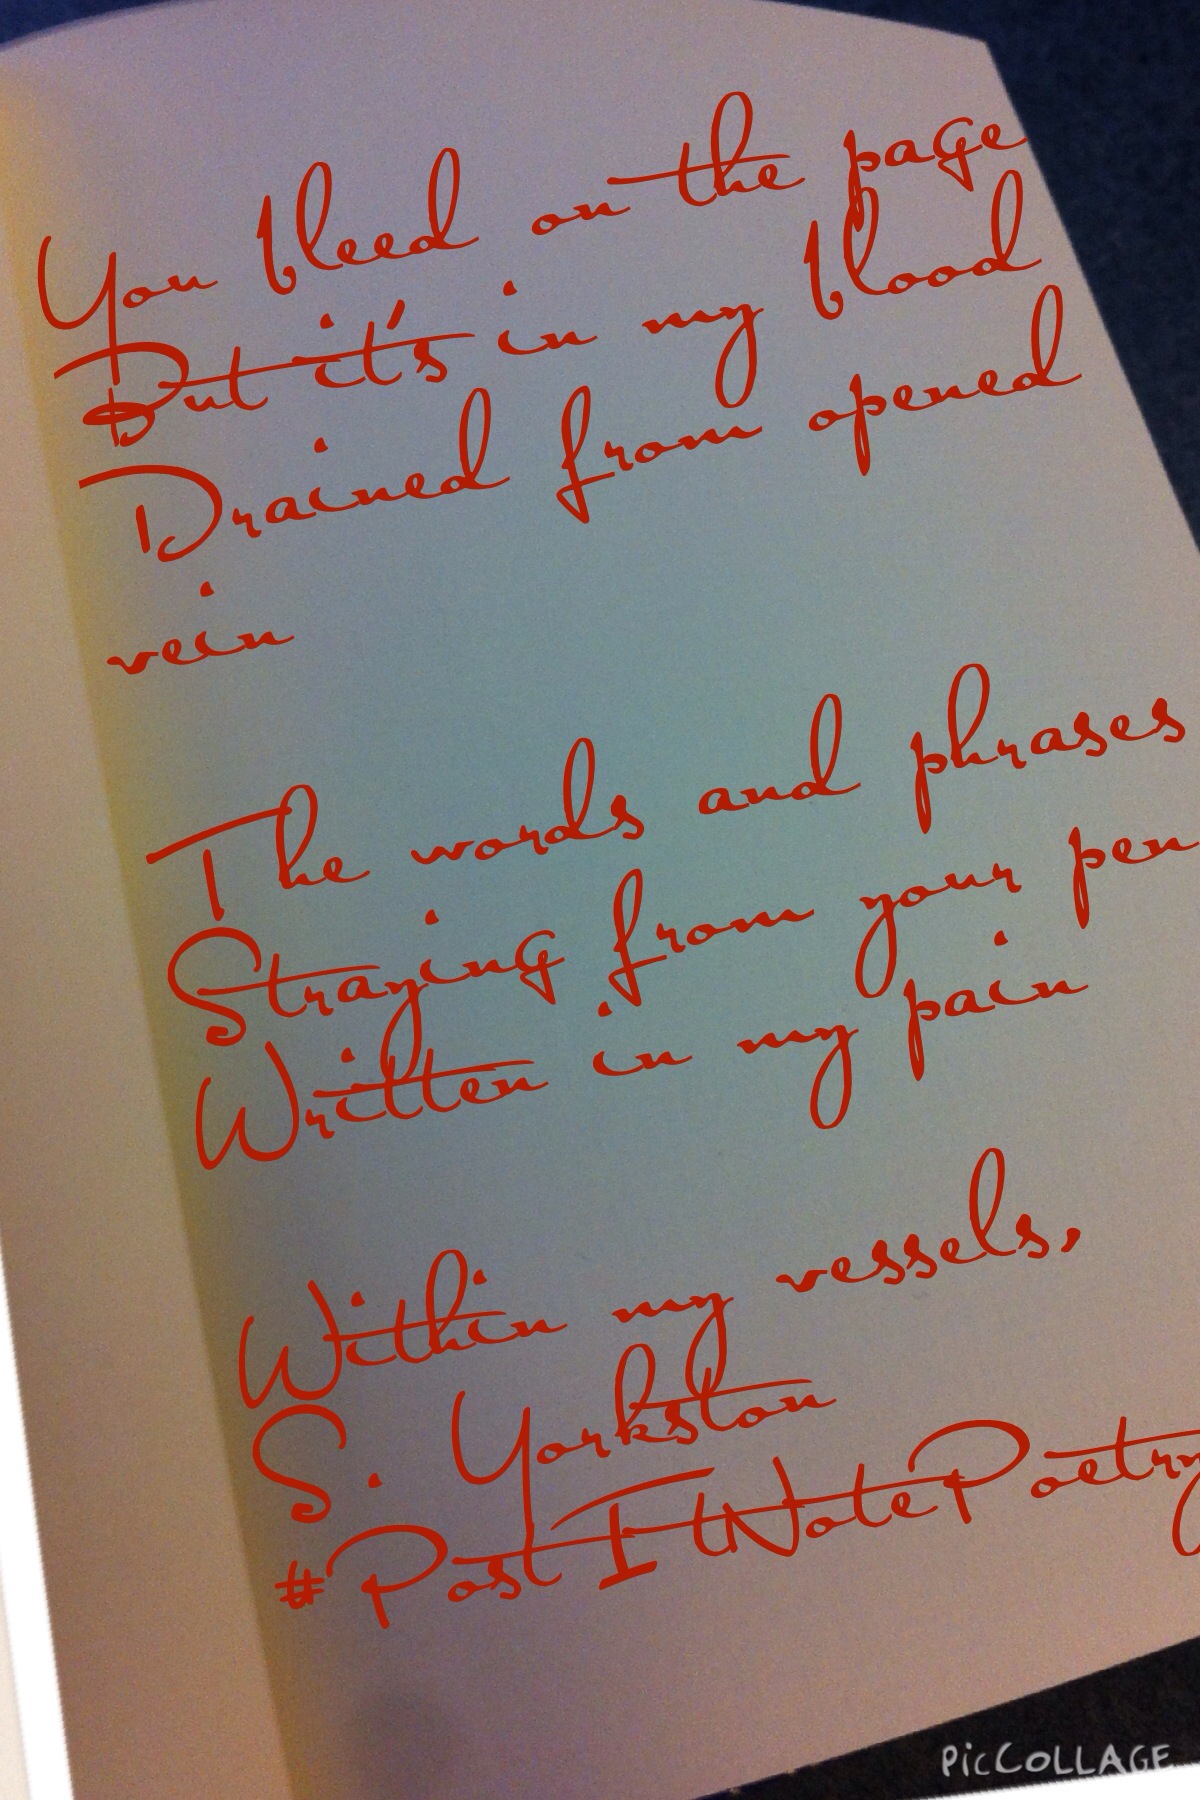 You bleed on the page
But it's in my blood
Drained from opened
vein
The words and phrases
Straying from your pen
Written in my pain
Within my vessels,
S. Yorkston
#PostItNotePoetry
PicCOLLAGE